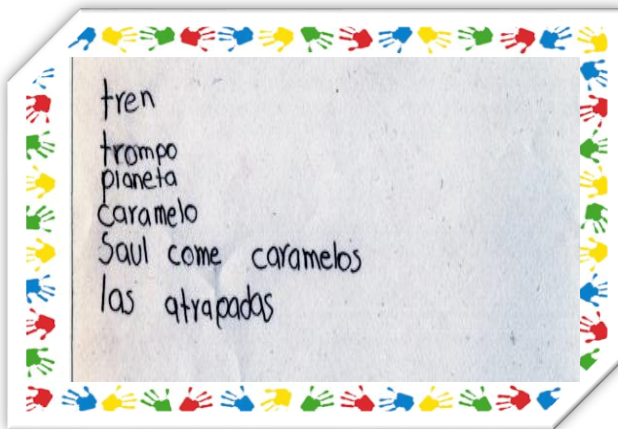 tren
trompo
planeta
caramelo
Saul come caramelos
las atrapadas